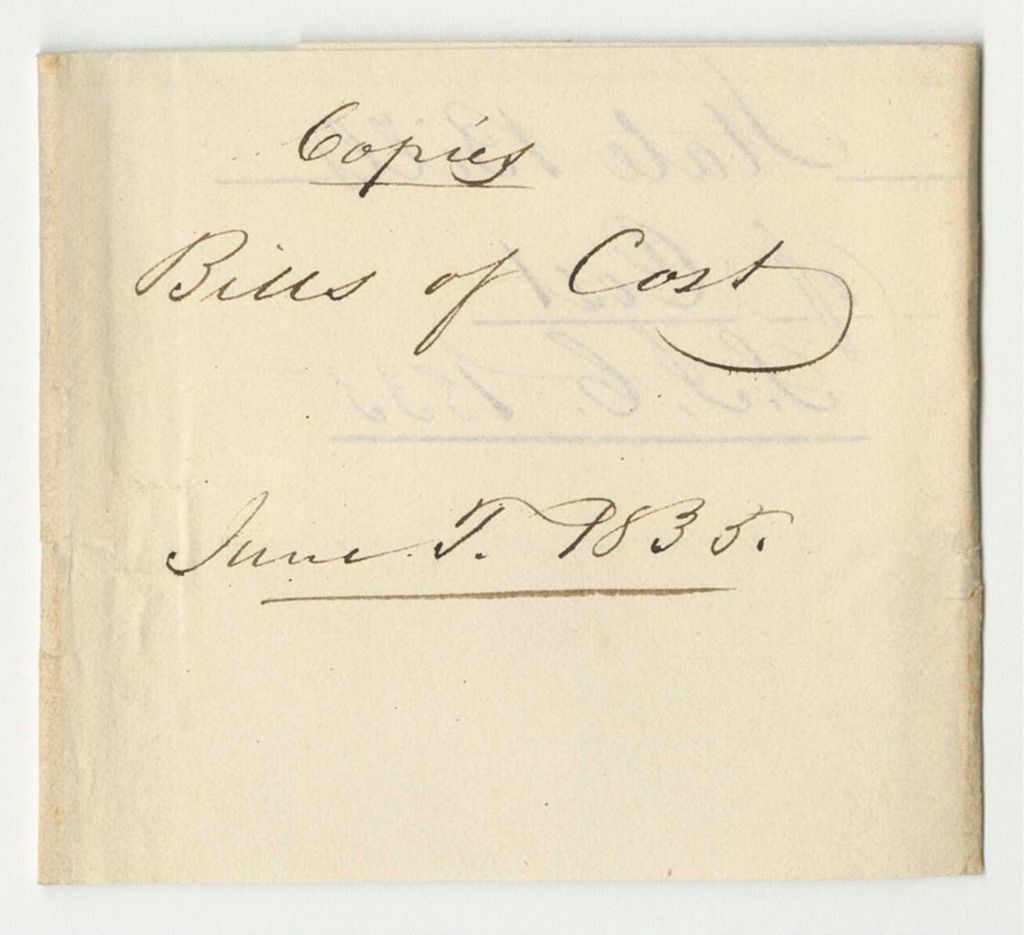 Copies
Bills of Cost
June T. 1835.